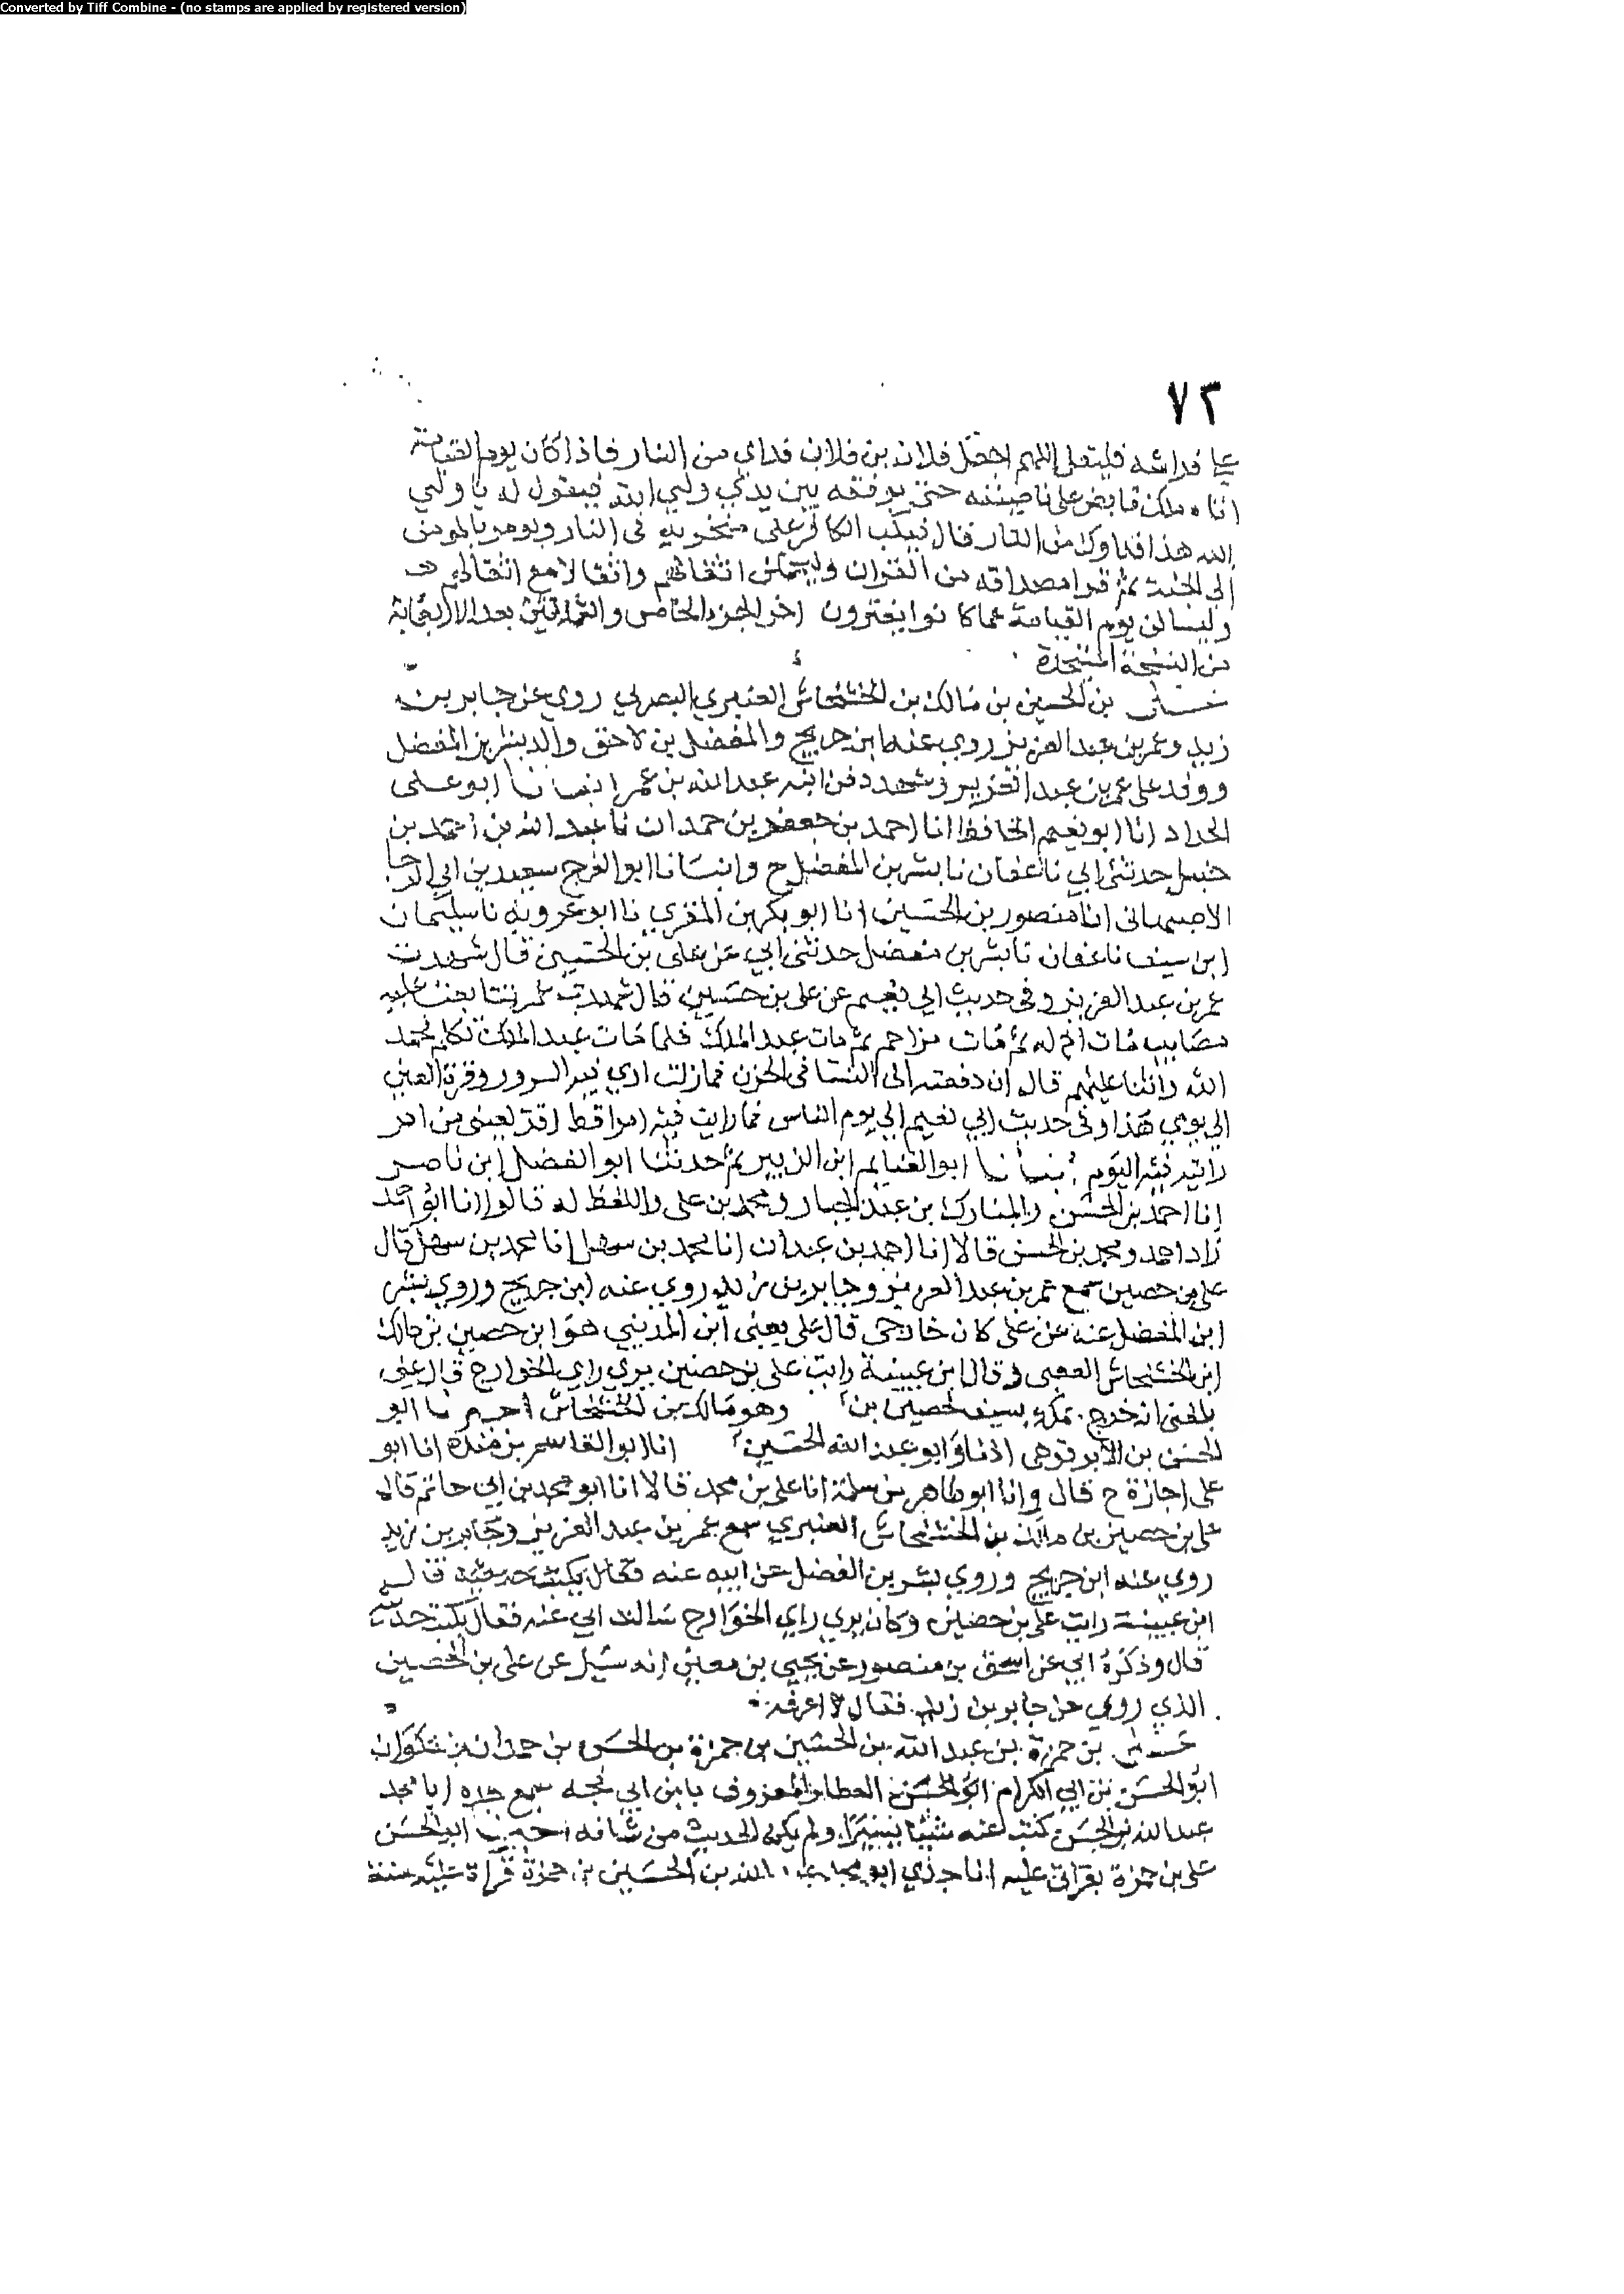 Converted by Tiff Combine - (no stamps are applied by registered version)
٧٣
على فراشه فليقل اللهم اجعل فلان بن فلان فداي من النار فاذا كان يوم القيامة
اتاه ملك قابض على ناصيته حتى يوقفه بين يدي ولي الله فيقول له يا ولي
الله هذا فداوك من النار قال فيكب الكافر على منخريه في النار ويومر بالمومن
الى الجنة ثم قرا مصداقه من القران وليحملن اثقالهم واثقالا مع اثقالهم
وليسالن يوم القيامة عما كانوا يفترون اخر الجزء الخامس والثمانين بعد الاربعماية
من النسخة
علي بن الحصين بن مالك بن الخشخاش العنبري البصري روى عن جابر بن
زيد وعمر بن عبد العزيز روى عنه ابن جريج والمفضل بن لاحق والد بشر بن المفضل
ووفد على عمر بن عبد العزيز وشهد دفن ابنه عبد الله بن عمر انبانا ابو علي
الحداد انا ابو نعيم الحافظ انا احمد بن جعفر بن حمدان نا عبد الله بن احمد بن
حنبل حدثني ابي نا عفان نا بشر بن المفضل ح وانبانا ابو الفرج سعيد بن ابي الرجا
الاصبهاني انا منصور بن الحسين انا ابو بكر بن المقري نا ابو عروبه نا سليمان
ابن سيف نا عفان نا بشر بن مفضل حدثني ابي عن علي بن الحصين قال شهدت
عمر بن عبد العزيز وفي حديث ابي نعيم عن علي بن حصين قال شهدت عمر تتابعت عليه
مصايب مات اخ له ثم مات مزاحم ثم مات عبد الملك فلما مات عبد الملك تكلم فحمد
الله واثنا عليه ثم قال ان دفعته الى النسا في الخرق فما زلت ارى فيه السرور وقرة العين
الى يومي هذا وفي حديث ابي نعيم الى يوم الناس فما رايت فيه امرا قط اقر لعيني من امر
رايته فيه اليوم انبانا ابو الغنايم ابن الزبير ثم حدثنا ابو الفضل ابن ناصر
انا احمد بن الحسن والمبارك بن عبد الجبار ومحمد بن علي واللفظ له قالوا انا ابو احمد
زاد احمد ومحمد بن الحسن قالا انا احمد بن عبدان انا محمد بن سهل انا محمد بن سهل قال
علي بن حصين سمع عمر بن عبد العزيز وجابر بن زيد روى عنه ابن جريج وروى بشر
ابن المفضل عنه عن علي كان خارجي قال علي يعني ابن المديني هو ابن حصين بن مالك
ابن الخشخاش وقال ابن عيينة رايت علي بن حصين يرى راي الخوارج قال علي
بلغني انه خرج بمكة بسيف الحصين بن وهو مالك بن الخشخاش اخبرنا ابو
الحسن بن الابرقوهي اذنا وابو عبد الله الحسين انا ابو القاسم بن منده انا ابو
علي اجازة ح قال وانا ابو طاهر بن سلمة انا علي بن محمد قالا انا ابو محمد بن ابي حاتم قال
علي بن حصين بن مالك بن الخشخاش العنبري سمع عمر بن عبد العزيز وجابر بن زيد
روى عنه ابن جريج وروى بشر بن المفضل عن ابيه عنه فقال يكتب حديثه قال
ابن عيينة رايت علي بن حصين وكان يرى راي الخوارج سالت ابي عنه فقال يكتب حديثه
قال وذكره ابي عن اسحق بن منصور عن يحيى بن معين انه سئل عن علي بن الحصين
الذي روى عن جابر بن زيد فقال لا اعرفه
علي بن حمزة بن عبد الله بن الحسين بن حمزة بن الحسن بن حمدان بن ذكوان
ابو الحسن بن ابي الكرام ابو الحسن العطار المعروف بابن ابي فجه سمع جده ابا محمد
عبد الله بن الحسين كتبت عنه شيئا يسيرا ولم يكن الحديث من شانه اخبرنا ابو الحسن
علي بن حمزة بقراتي عليه انا جدي ابو محمد عبد الله بن الحسين بن حمزة قراة عليه سنة